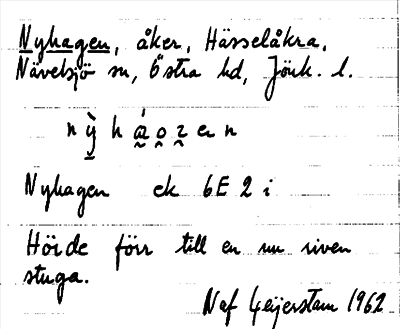 Nyhagen, åker, Hässelåkra,
Nävelsjö sn, Östra hd, Jönk. l.
Nyhagen ek 6E 2 i
Hörde förr till en nu riven
stuga.
Naf Geijerstam 1962